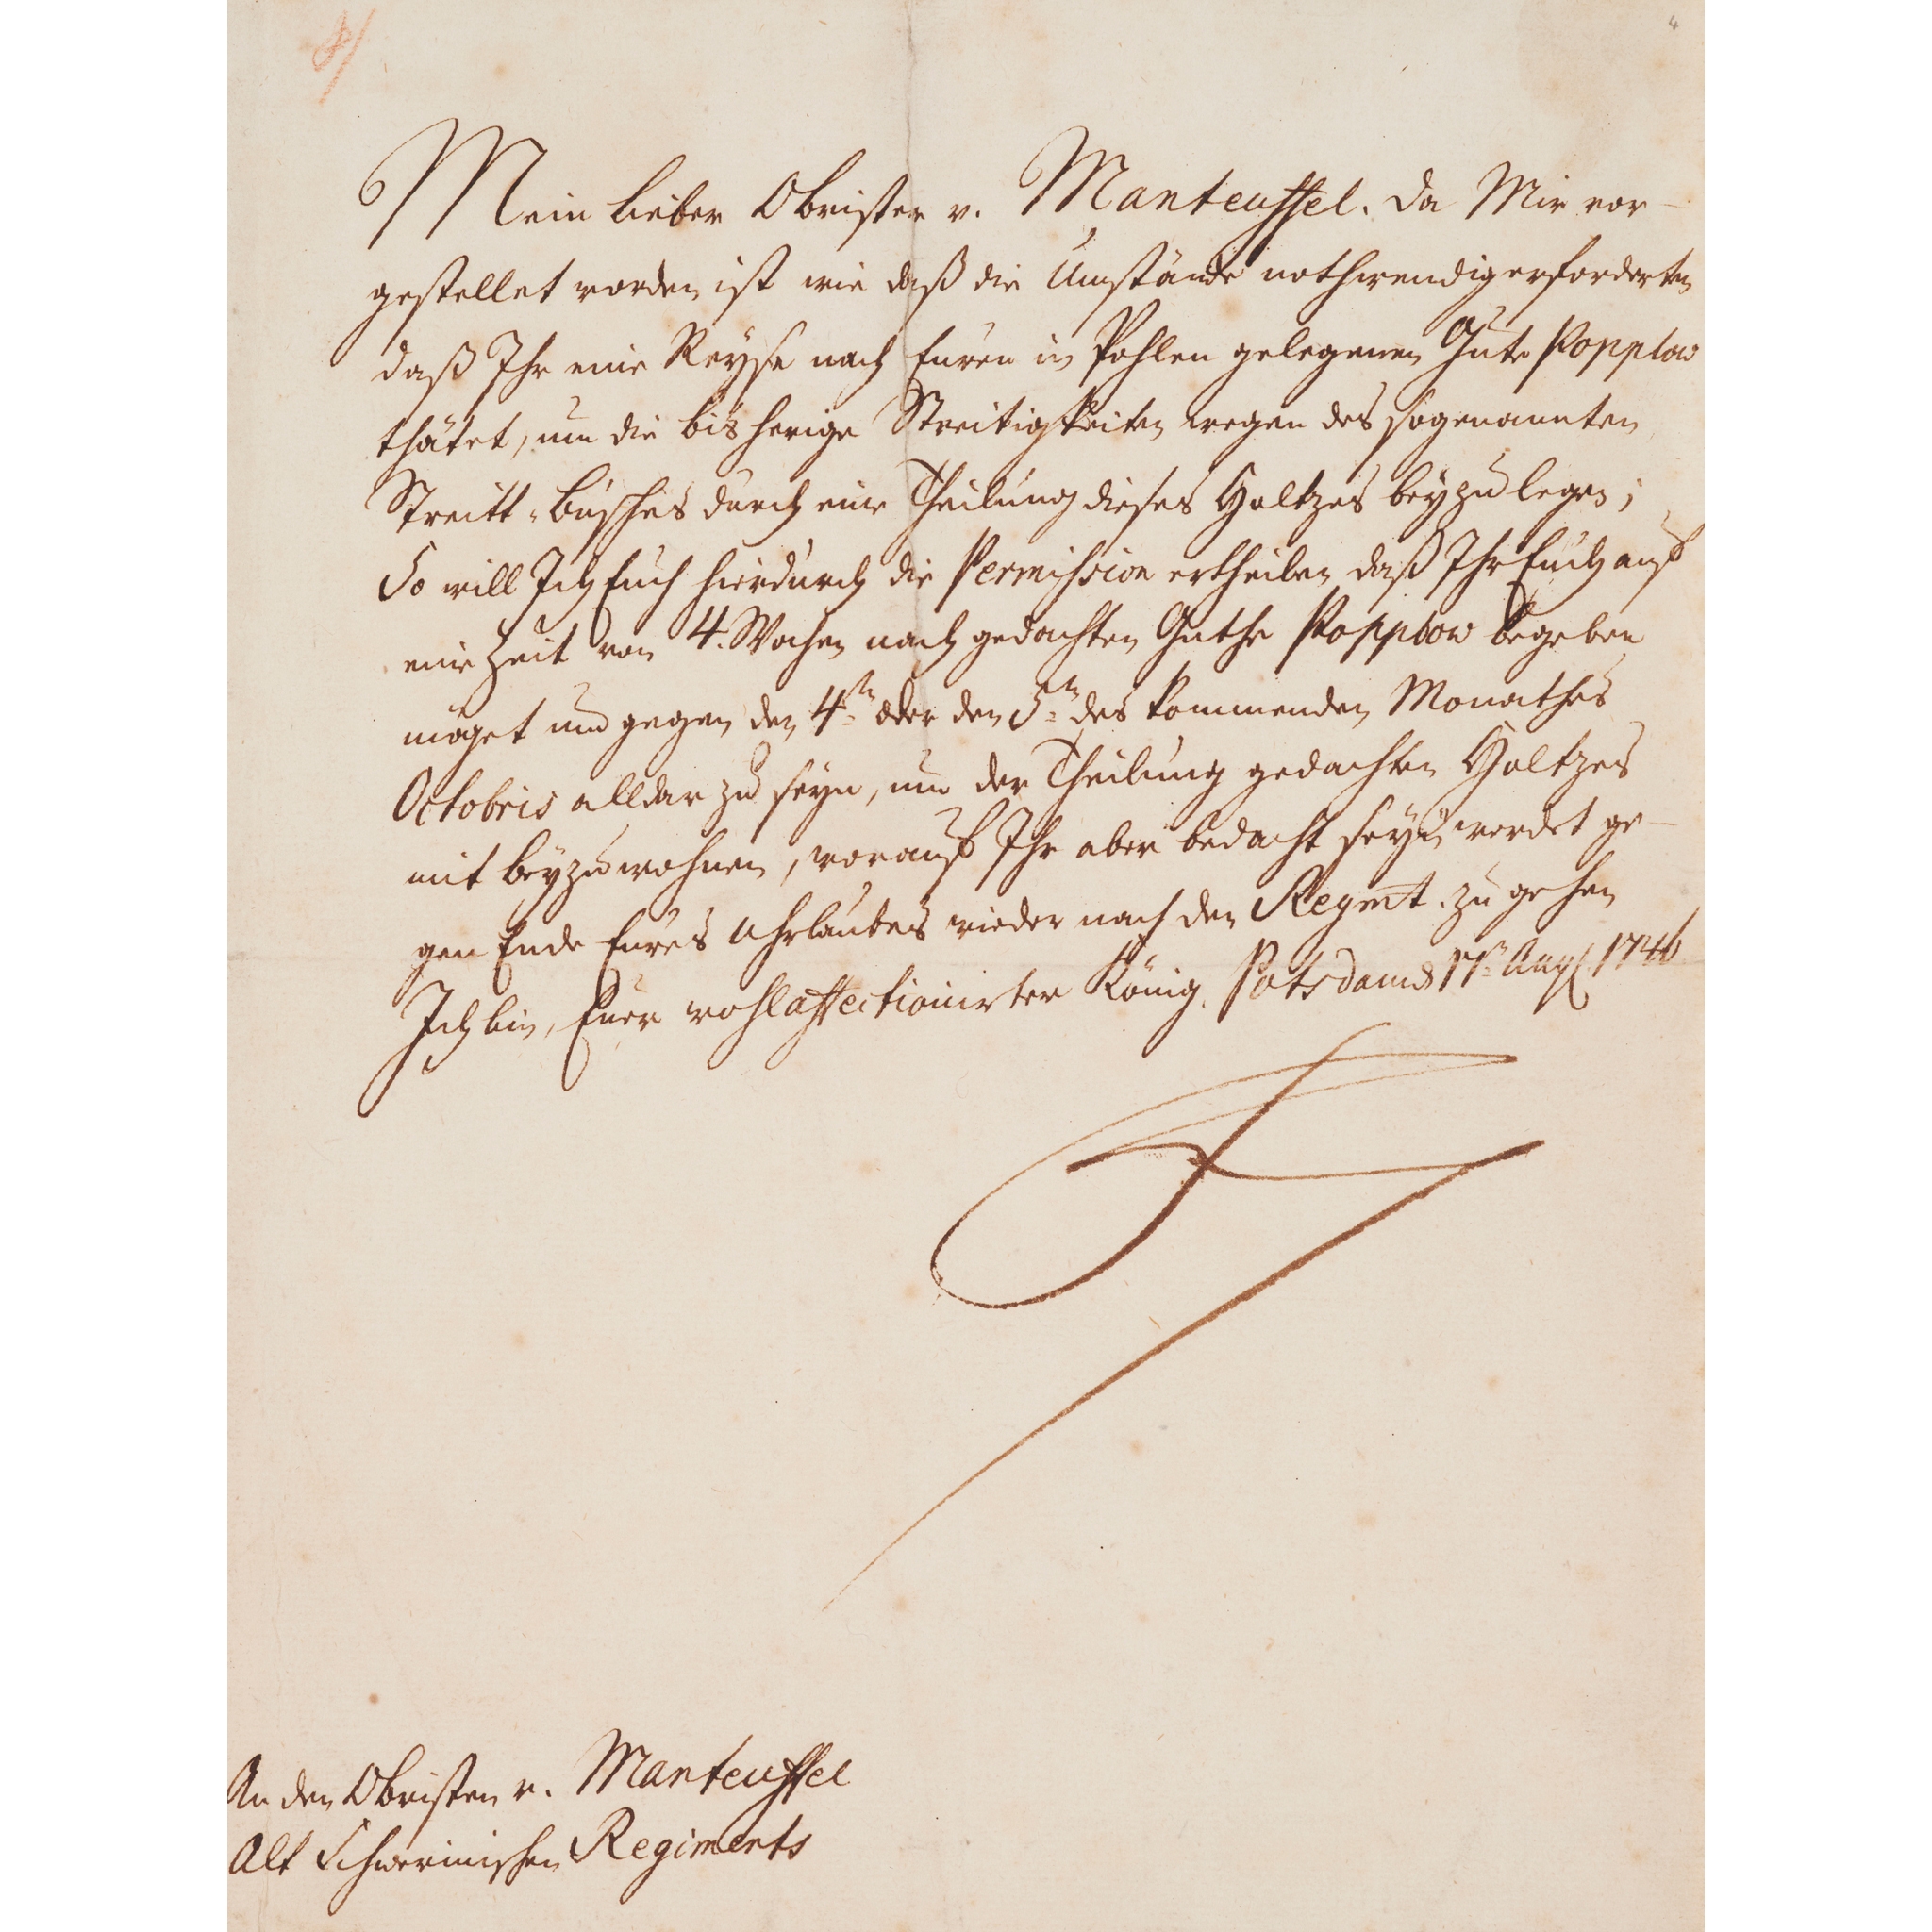 4
Mein lieber Obrister v. Manteuffel. Da Mir vor-
gestellet worden ist wie daß die Umstände nothwendig erforderten
daß Ihr eine Reyse nach Euren in Pohlen gelegenen Guthe Popplow
thätet, um die bisherige Streitigkeiten wegen des sogenannten
Streitt-Busches durch eine Theilung dieses Holtzes beyzulegen;
So will Ich Euch hierdurch die Permission ertheilen daß Ihr Euch auf
eine Zeit von 4. Wochen nach gedachten Guthe Popplow begeben
möget um gegen den 4ten oder den 5ten des kommenden Monathes
Octobris alldar zu seyn, um der Theilung gedachten Holtzes
mit beyzuwohnen, worauf Ihr aber bedacht seyn werdet ge-
gen Ende Eures Uhrlaubes wieder nach den Regmt. zu gehen
Ich bin, Euer wohlaffectionirter König. Potsdam d 1746
An den Obristen v. Manteuffel
Alt Schwerinischen Regiments